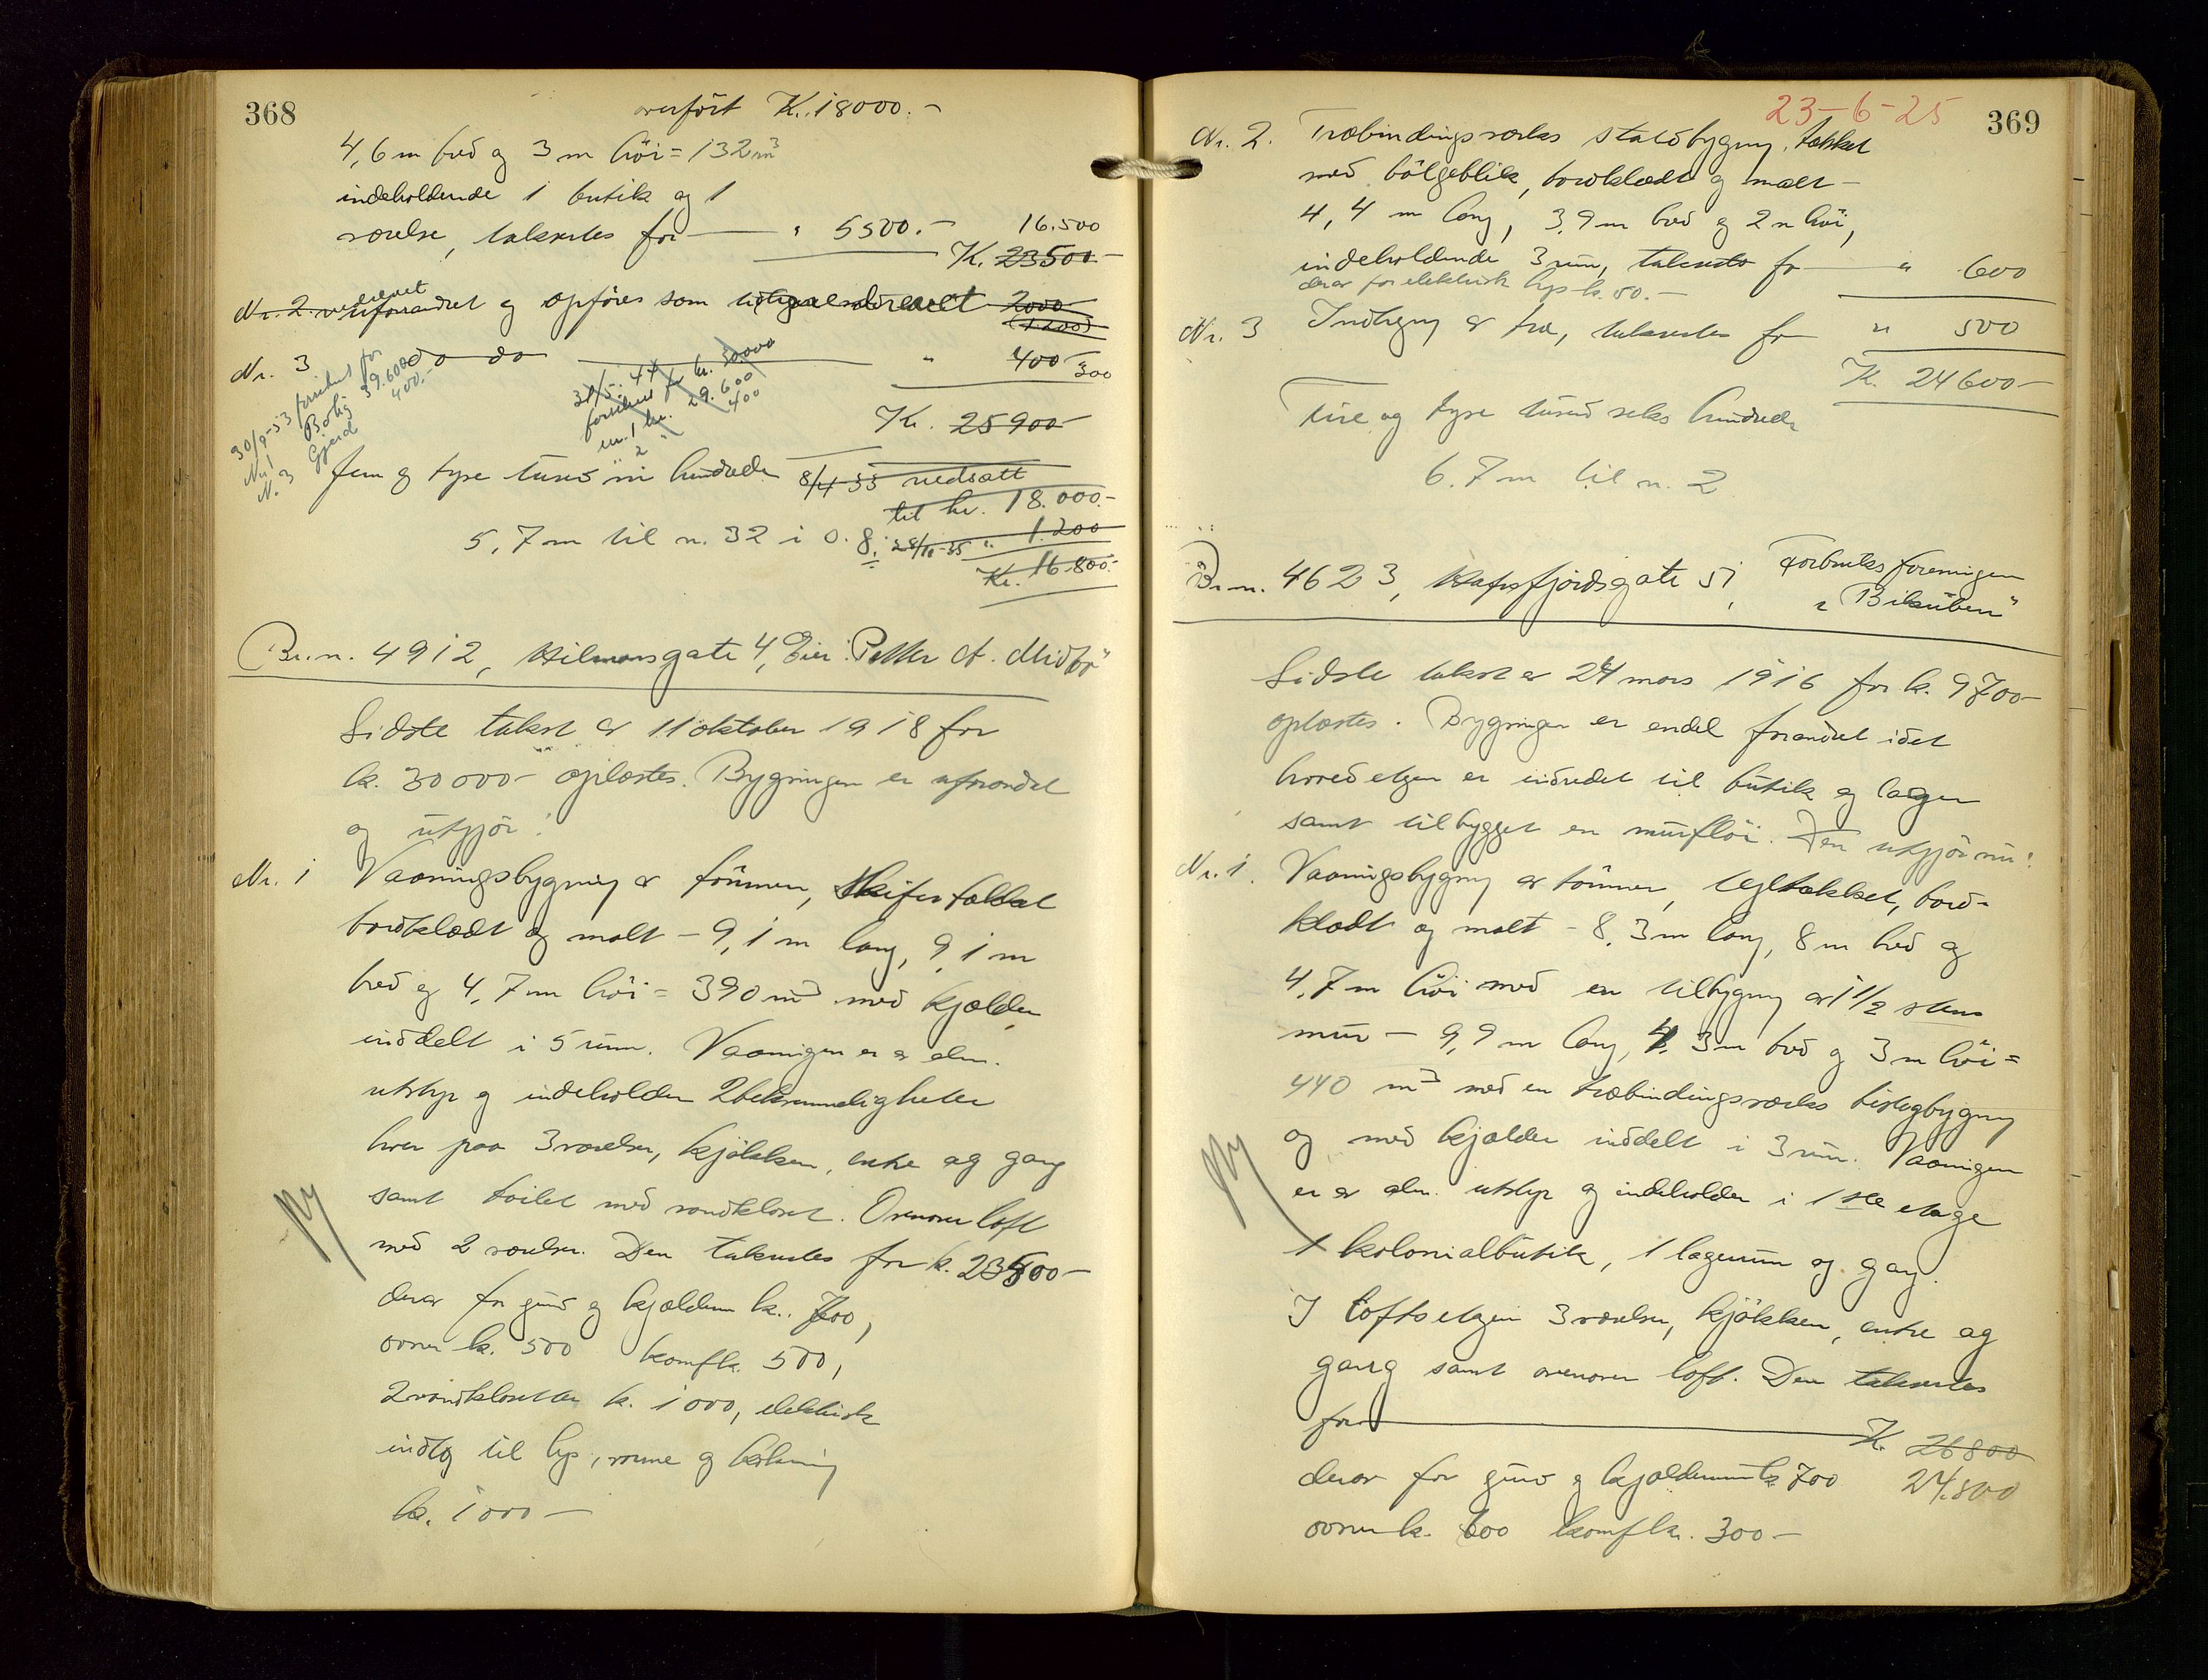 368
overført K. 18000.-
4,6 m bred og 3 m höi = 132 m³
indeholdende 1 butik og 1
værelse, takseres for " 5500.- 16.500
K. 23500.-
Nr. 2. nedrevet uforandret og opføres som 2000
(1.200)
Nr. 3 do do " 400 300
30/9-53 forsikret for
Nr 1 Bolig 39.600
N. 3 Gjerd 400.-
31/5.44 for kr. 30000
forsikret
nr. 1 kr. 29.600
" 2 " 400
Kr. 25900
fem og tyve tusen ni hundrede 8/4-33 nedsatt
til kr. 18.000.-
5,7 m til n. 32 i O. 8. 28/11-35 " 1.200
Kr. 16.800.-
Br.n. 4912, Hilmarsgate 4, Eier: Petter A. Midbø
Sidste takst er 11 oktober 1918 for
k. 30000- oplæstes. Bygningen er uforandret
og utgjör:
Nr. 1 Vaaningsbygning av tömmer, skifertækket
bordklædt og malt - 9,1 m lang, 9,1 m
bred og 4,7 m höi = 390 m³ med kjælder
inddelt i 5 rum. Vaaningen er av alm.
utstyr og indeholder 2 bekvemmeligheter
hver paa 3 værelser, kjökken, entre og gang
samt toilet med vandkloset. Ovenover loft
med 2 værelser. Den takseres for k. 23500-
derav for grund og kjælderum k. 700,
ovner k. 500 komf k. 500,
2 vandklosetter k. 1000, elektrisk
indlæg til lys, varme og kokning
k. 1000-
23-6-25
369
Nr. 2. Træbindingsverks staldbygning, tækket
med bölgeblik, bordklædt og malt -
4,4 m lang, 3,9 m bred og 2 m höi,
indeholdende 3 rum, takseres for " 600
derav for elektrisk lys k. 50.-
Nr. 3 Indhegning av træ, takseres for " 500
K. 24600-
Fire og tyve tusend seks hundrede
6.7 m til n. 2
Br.n. 4623, Hafrsfjordsgate 51, Forbruksforeningen
"Bikuben"
Sidste takst er 24 mars 1916 for k. 9700-
oplæstes. Bygningen er endel forandret idet
hovedetagen er indredet til butik og lager
samt tilbygget en murflöi. Den utgjör nu:
Nr. 1. Vaaningsbygning av tömmer, tegltækket, bord-
klædt og malt - 8,3 m lang, 8 m bred og
4,7 m höi med en tilbygning av 1 1/2 stens
mur - 9,9 m lang, 4,3 m bred og 3 m höi =
440 m³ med en træbindingsverks bislagbygning
og med kjælder inddelt i 3 rum. Vaaningen
er av alm. utstyr og indeholder i 1ste etage
1 kolonialbutik, 1 lagerrum og gang.
I loftsetagen 3 værelser, kjökken, entre og
gang samt ovenover loft. Den takseres
for K. 26800
derav for grund og kjælderrum k. 700 24.800
ovner k. 600 komf k. 300-